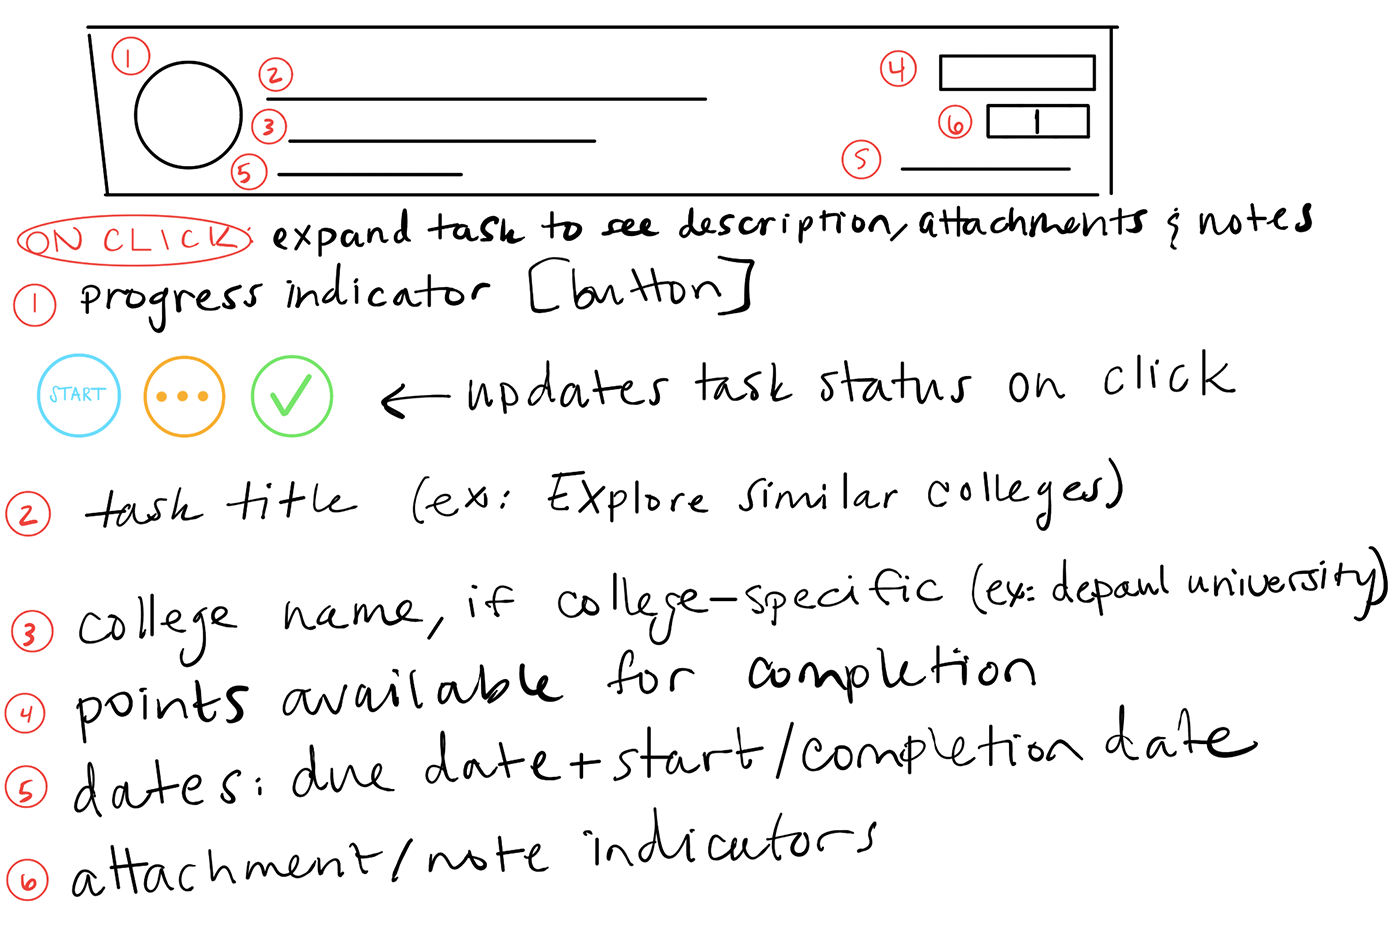 1
2
4
3
6
5
5
ON CLICK: expand task to see description, attachments & notes
1 progress indicator [button]
START ← updates task status on click
2 task title (ex: Explore similar colleges)
3 college name, if college-specific (ex: depaul university)
4 points available for completion
5 dates: due date + start/completion date
6 attachment/note indicators